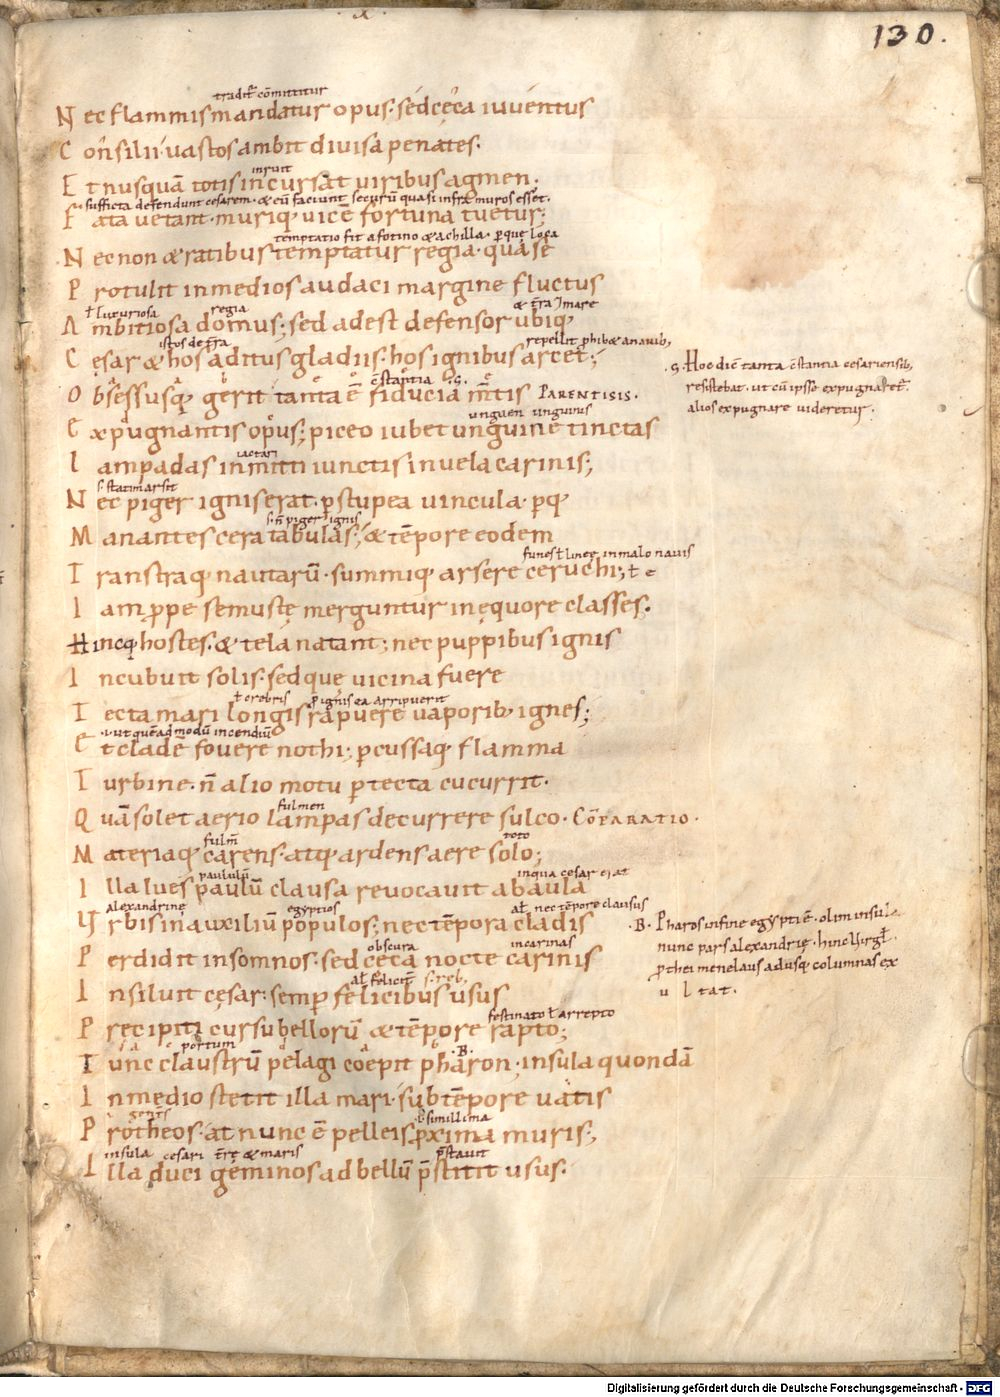 x.
130.
tradit͛ cōmittitur
Nec flammis mandatur opus· sed cęca iuventus
Consilii· vastos ambit divisa penates·
inruit
Et nusquā totis incursat viribus agmen·
s· sufficta defendunt cesarem· & eū faciunt securū quasi infra muros esset·
Fata vetant· muriq; vicē fortuna tuetur;
temptatio fit a fotino & achilla· perque loca
Nec non & ratibus temptatur regia· qua se
Protulit in medios audaci margine fluctus
ł luxuriosa regia & t̄ra ⁊ mare
Ambitiosa domus; sed adest defensor ubiq;
istos de t̄ra repellit phibꝫ a navib;
Cęsar & hos aditus gladiis· hos ignibus arcet;
cōstantia ·s·
Obsessusq; gerit tanta ē fiducia m̄tis PARENTISIS·
unguen unguinis
Expugnantis opus; piceo iubet unguine tinctas
iactari
Lampadas inmitti iunctis in vela carinis;
s· statim arsit
Nec piger ignis erat· p stupea vincula· pq;
s· ñ piger ignis
Manantes cera tabulas; & tēpore eodem
funes ł linee in malo navis
Transtraq; nautarū· summiq; arsere ceruchi; ł e
Iam ppe semustę merguntur in ęquore classes·
Hincq; hostes· & tela natant; nec puppibus ignis
Incubuit solis· sed que vicina fuere
ł crebris p ignis ea arripuerit
Tecta mari longis rapuere vaporib; ignes;
·i· ut quēadmodū incendiū
Et cladē fovere nothi; pcussaq; flamma
Turbine· ñ alio motu p tecta cucurrit·
fulmen
Quā solet aerio lampas decurrere sulco· CŌPARATIO·
fulm̄ toto
Materiaq; carens· atq; ardens aere solo;
paululū in qua cesar erat
Illa lues paulū clausa revocavit ab aula
alexandrinę egyptios aƚ nec tēpore clausus
Urbis in auxiliū populos; nec tēpora cladis
obscura in carinas
Perdidit in somnos· sed cęca nocte carinis
s· reb;
Insiluit cęsar: semp felicibus usus
festinato ł arrepto
Precipiti cursu bellorū & tēpore rapto;
portum ·B·
Tunc claustrū pelagi coepit pharon· insula quondā
In medio stetit illa mari· sub tēpore vatis
gentis simillima
Protheos· at nunc ē pelleis pxima muris;
insula cesari t̄rę & maris p̄stavit
Illa duci geminos ad bellū p̄stitit usus·
·s· Hoc dic̄ tanta c̄stantia cesariensib;
resistebat· ut cū ipse expugnaret͛·
alios expugnare videretur·
·B· Pharos in fine egypti ē· olim insula
nunc pars alexandrię· hinc Virgƚ·
pthei menelaus adusq; columnas ex
u l tat·
Digitalisierung gefördert durch die Deutsche Forschungsgemeinschaft - DFG